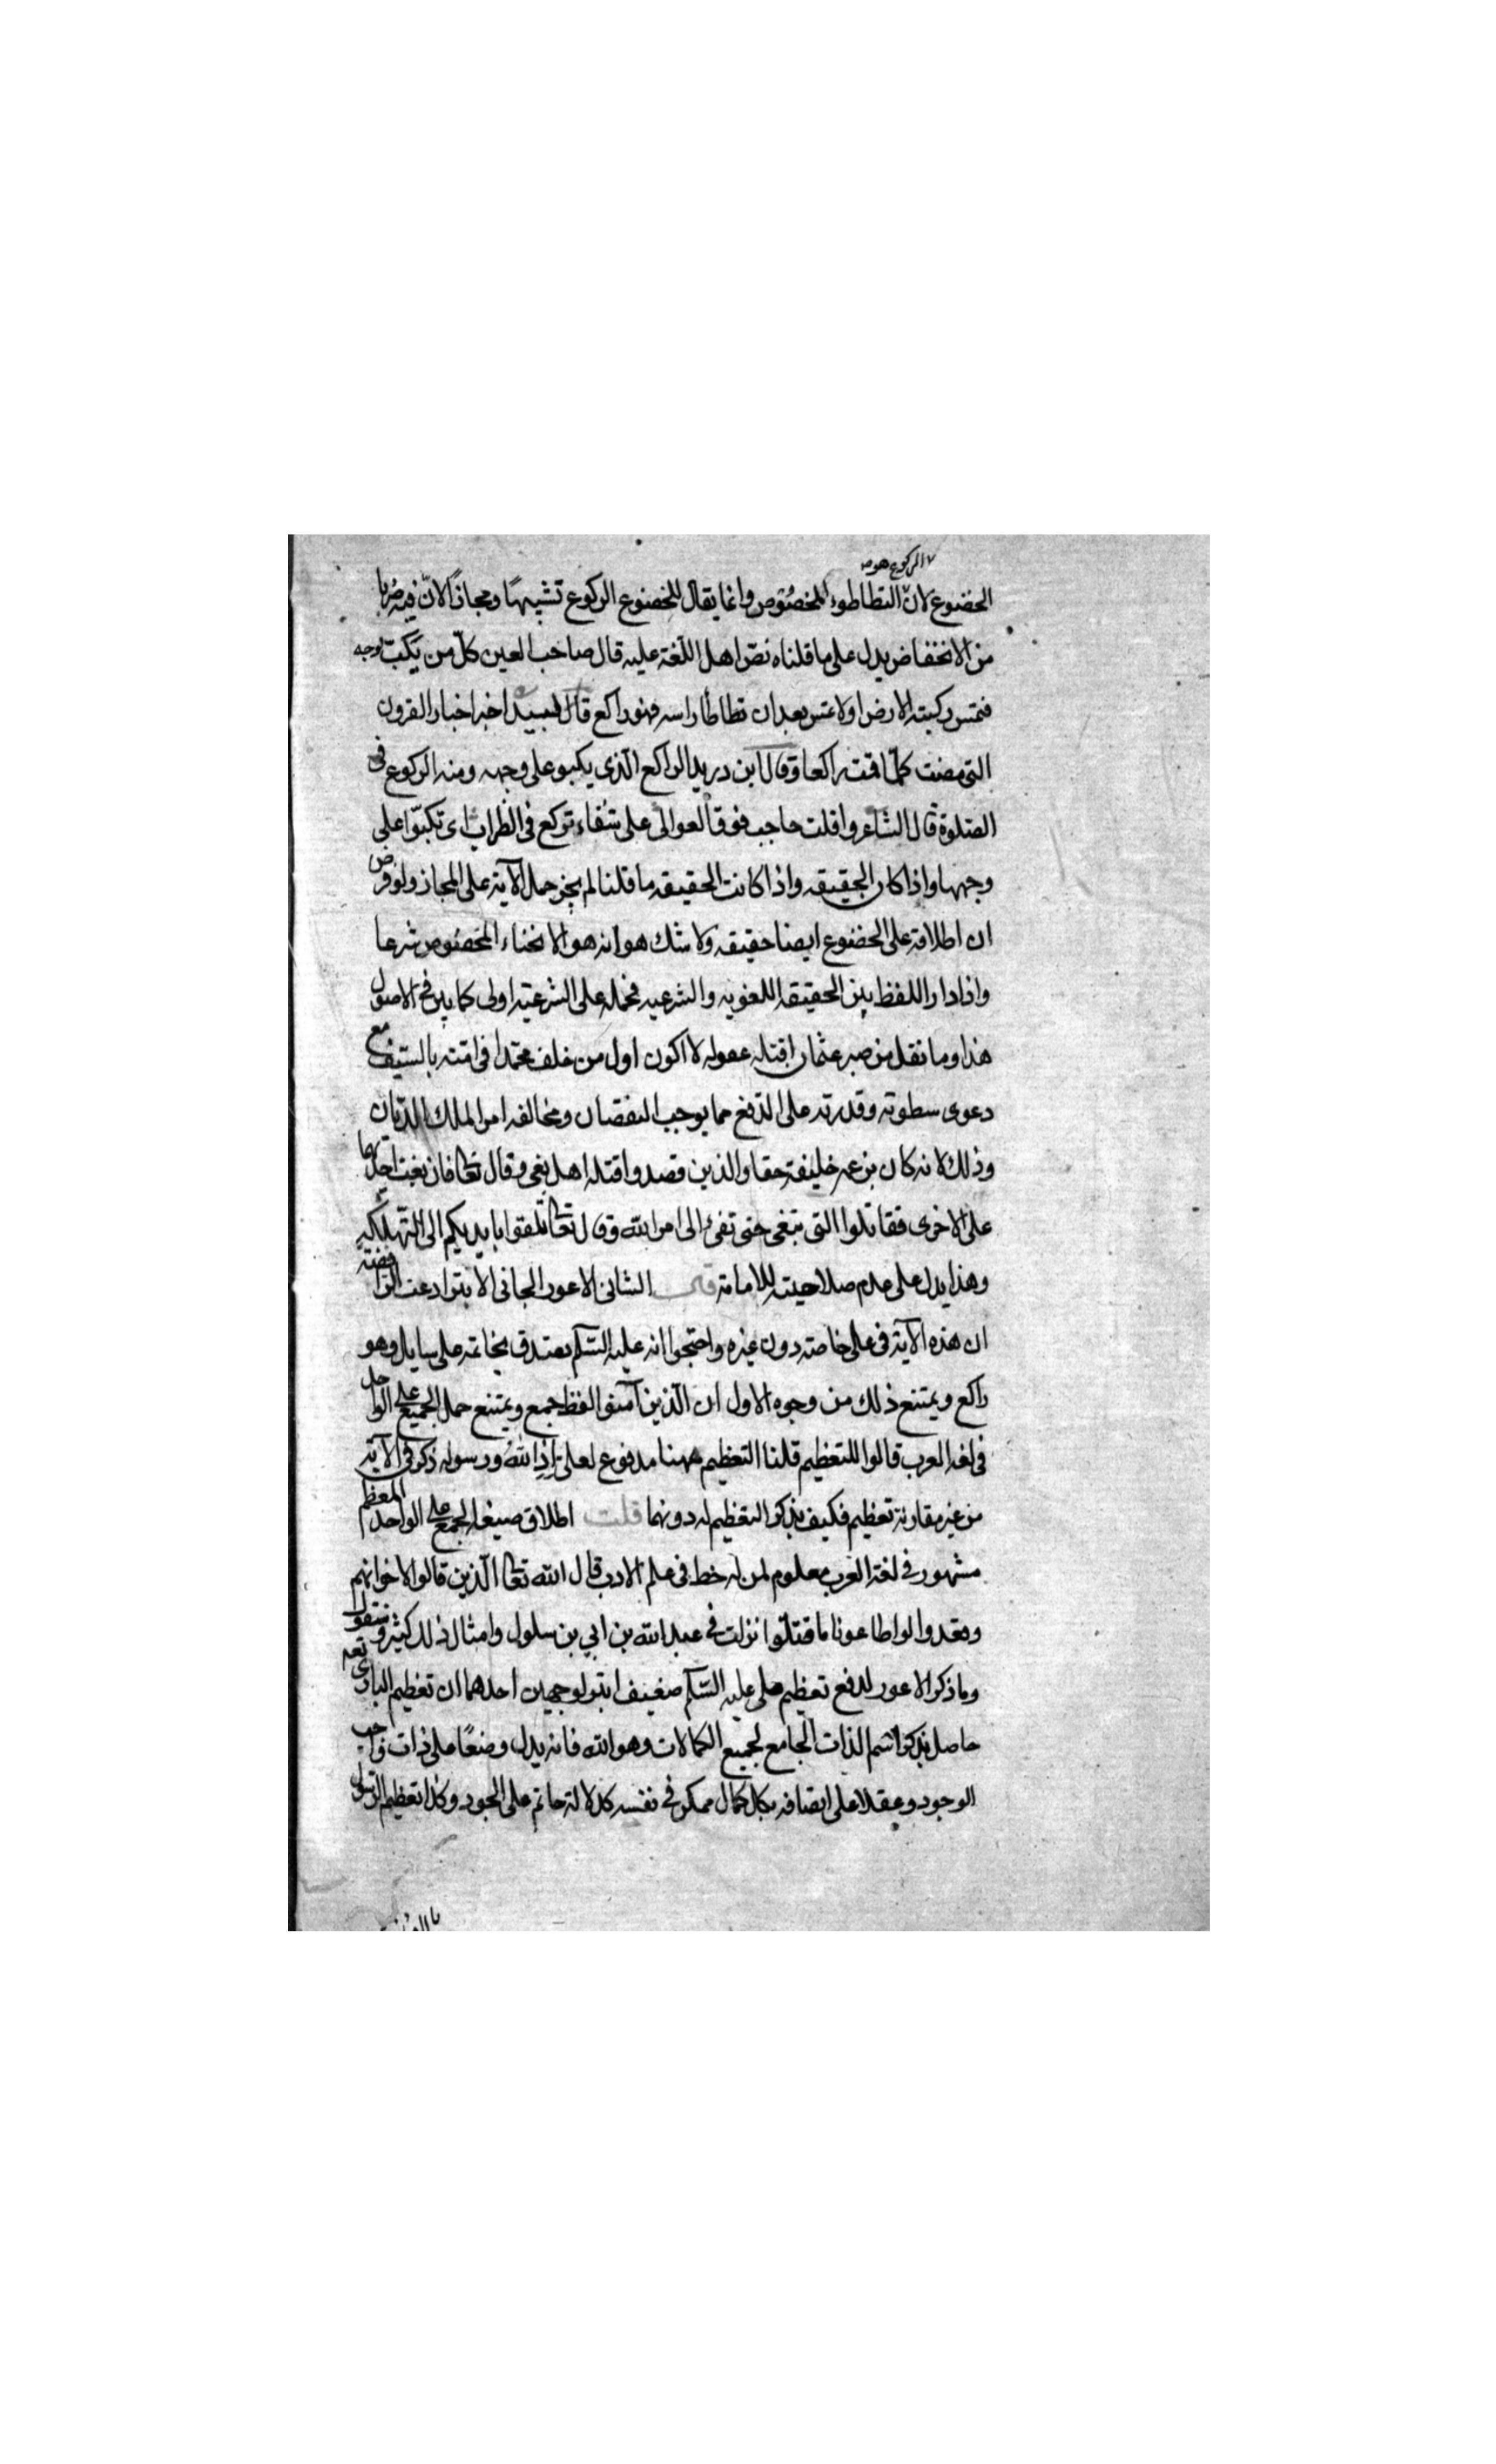 الركوع هو
الخضوع لان التطاطوء المخصوص وانما يقال للخضوع الركوع تشبيها ومجازا لان فيه ضربا
من الانخفاض يدل على ما قلناه نص اهل اللغة عليه قال صاحب العين كل من يكب لوجه
فتمس ركبته الارض او لا تمس بعد ان تطاطأ راسه فهو راكع قال لبيد اخبر اخبار القرون
التي مضت كلما قمت راكعا وقال ابن دريد الراكع الذي يكبو على وجهه ومنه الركوع في
الصلوة قال الشاعر وافلت حاجب فوق العوالى على شقاء تركع في الظراب اى تكبوا على
وجهها واذا كان الحقيقه واذا كانت الحقيقه ما قلنا لم يجز حمل الآية على المجاز ولو فرض
ان اطلاقه على الخضوع ايضا حقيقه ولا شك هو انه هو الانحناء المخصوص شرعا
واذا دار اللفظ بين الحقيقه اللغويه والشرعيه فحمله على الشرعيه اولى كما بين في الاصول
هذا وما نقل من صبر عثمان لقتله بقوله لا اكون اول من خلف محمدا في امته بالسيف مع
دعوى سطوته وقدرته على الدفع مما يوجب النقصان ومخالفه امر الملك الديان
وذلك لانه كان بزعمه خليفة حقا والذين قصدوا قتله اهل بغي وقال تعا فان بغت احديهما
على الاخرى فقاتلوا التى تبغى حتى تفئ الى امر الله وقال تعا ولا تلقوا بايديكم الى التهلكه
وهذا يدل على عدم صلاحيته للامامة قال الشانى الاعور الجانى الابتر ادعت الرافضة
ان هذه الآية في على خاصته دون غيره واحتجوا انه عليه السلم تصدق بخاتمه على سايل وهو
راكع ويمتنع ذلك من وجوه الاول ان الذين آمنوا لفظ جمع ويمتنع حمل الجميع على الواحد
في لغه العرب قالوا للتعظيم قلنا التعظيم ههنا مدفوع لعلى اذ الله ورسوله ذكر في الآية
من غير مقارنة تعظيم فكيف يذكر التعظيم له دونهما قلت اطلاق صيغه الجمع على الواحد المعظم
مشهور في لغة العرب معلوم لمن له خط في علم الادب قال الله تعا الذين قالوا لاخوانهم
وقعدوا لو اطاعونا ما قتلوا نزلت في عبد الله بن ابي بن سلول وامثال ذلك كثير وستقول
وما ذكر الاعور لدفع تعظيم على عليه السلم ضعيف ابتر لوجهين احدهما ان تعظيم البارى تعه
حاصل بذكر اسم الذات الجامع لجميع الكمالات وهو الله فانه يدل وضعا على ذات واجب
الوجود وعقلا على اتصافه بكل كمال ممكن في نفسه كدلالة حاتم على الجود وكذا تعظيم الرسول